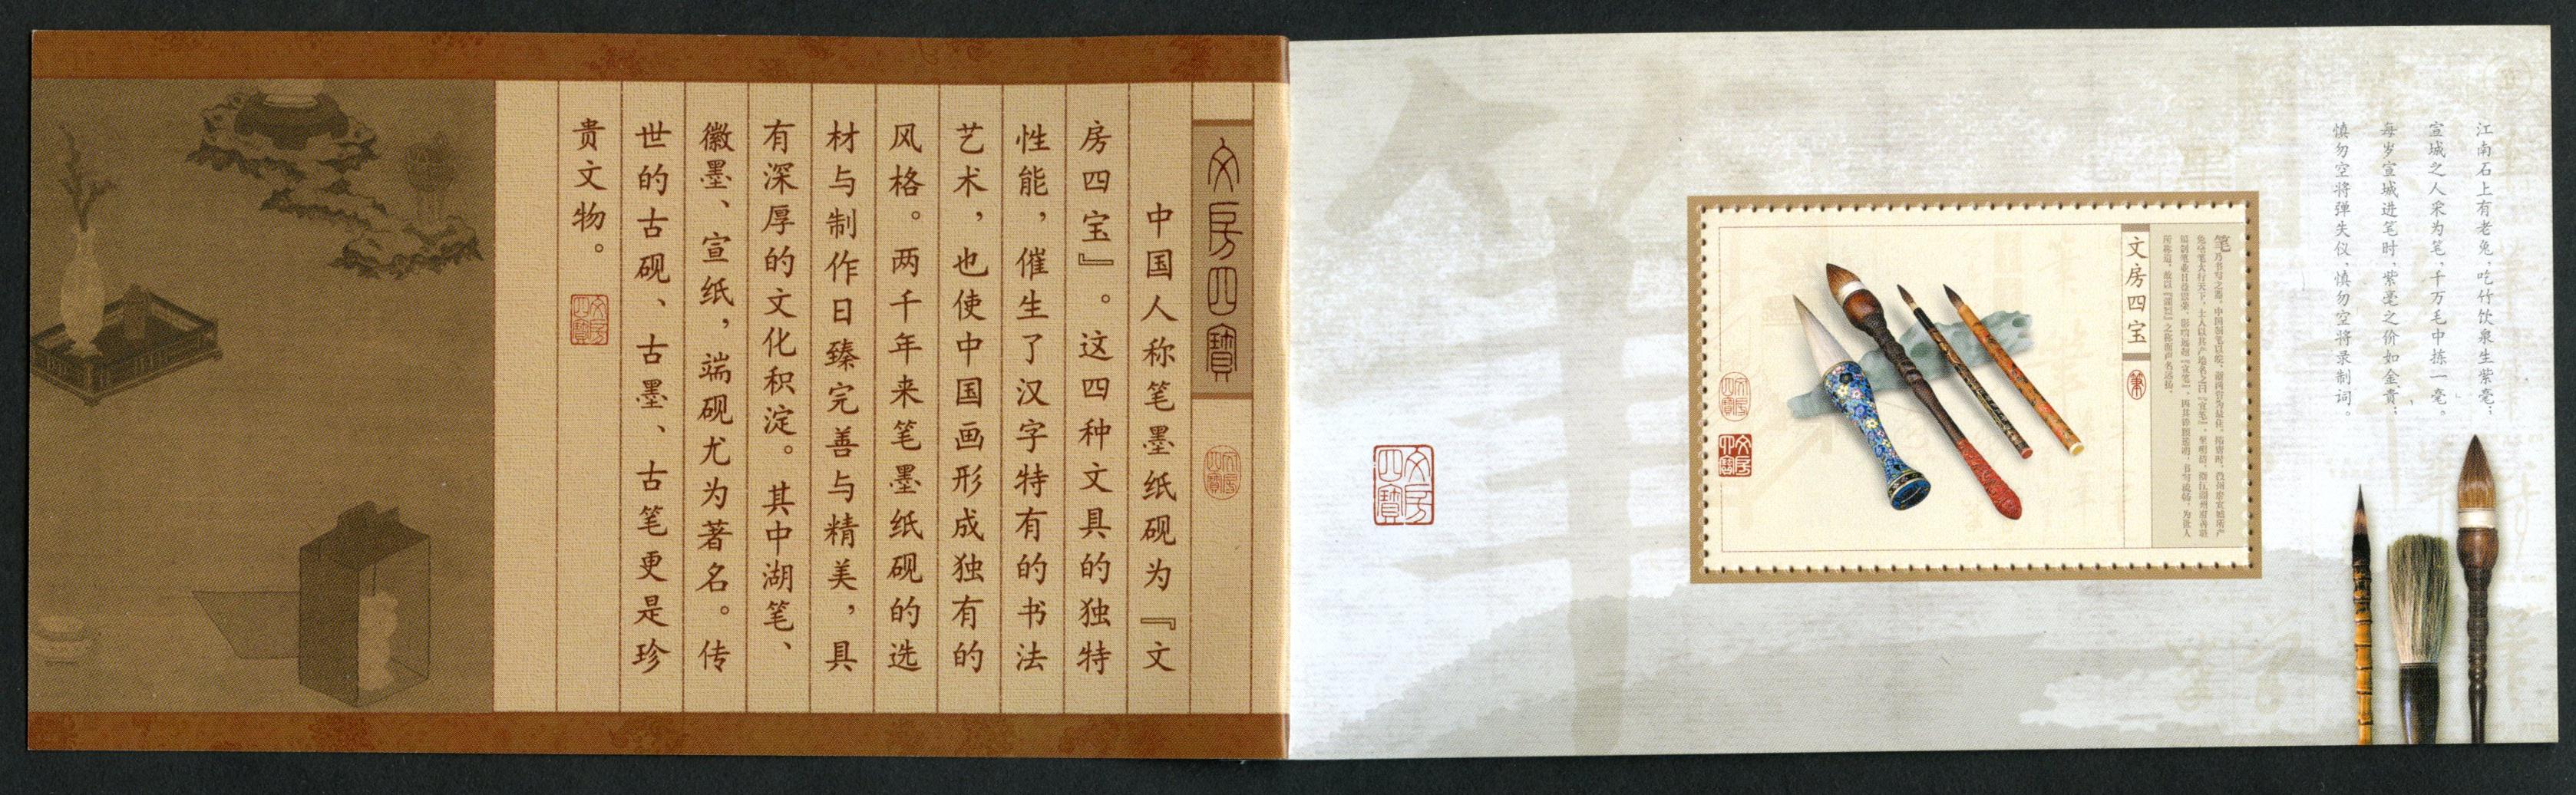 文房四寶
文房四寶
中国人称笔墨纸砚为『文
房四宝』。这四种文具的独特
性能，催生了汉字特有的书法
艺术，也使中国画形成独有的
风格。两千年来笔墨纸砚的选
材与制作日臻完善与精美，具
有深厚的文化积淀。其中湖笔、
徽墨、宣纸，端砚尤为著名。传
世的古砚、古墨、古笔更是珍
贵文物。
文房四寶
江南石上有老兔，吃竹饮泉生紫毫；
宣城之人采为笔，千万毛中拣一毫。
每岁宣城进笔时，紫毫之价如金贵；
慎勿空将弹失仪，慎勿空将录制词。
笔
文房四宝
文房四寶
文房四寶
文房四寶